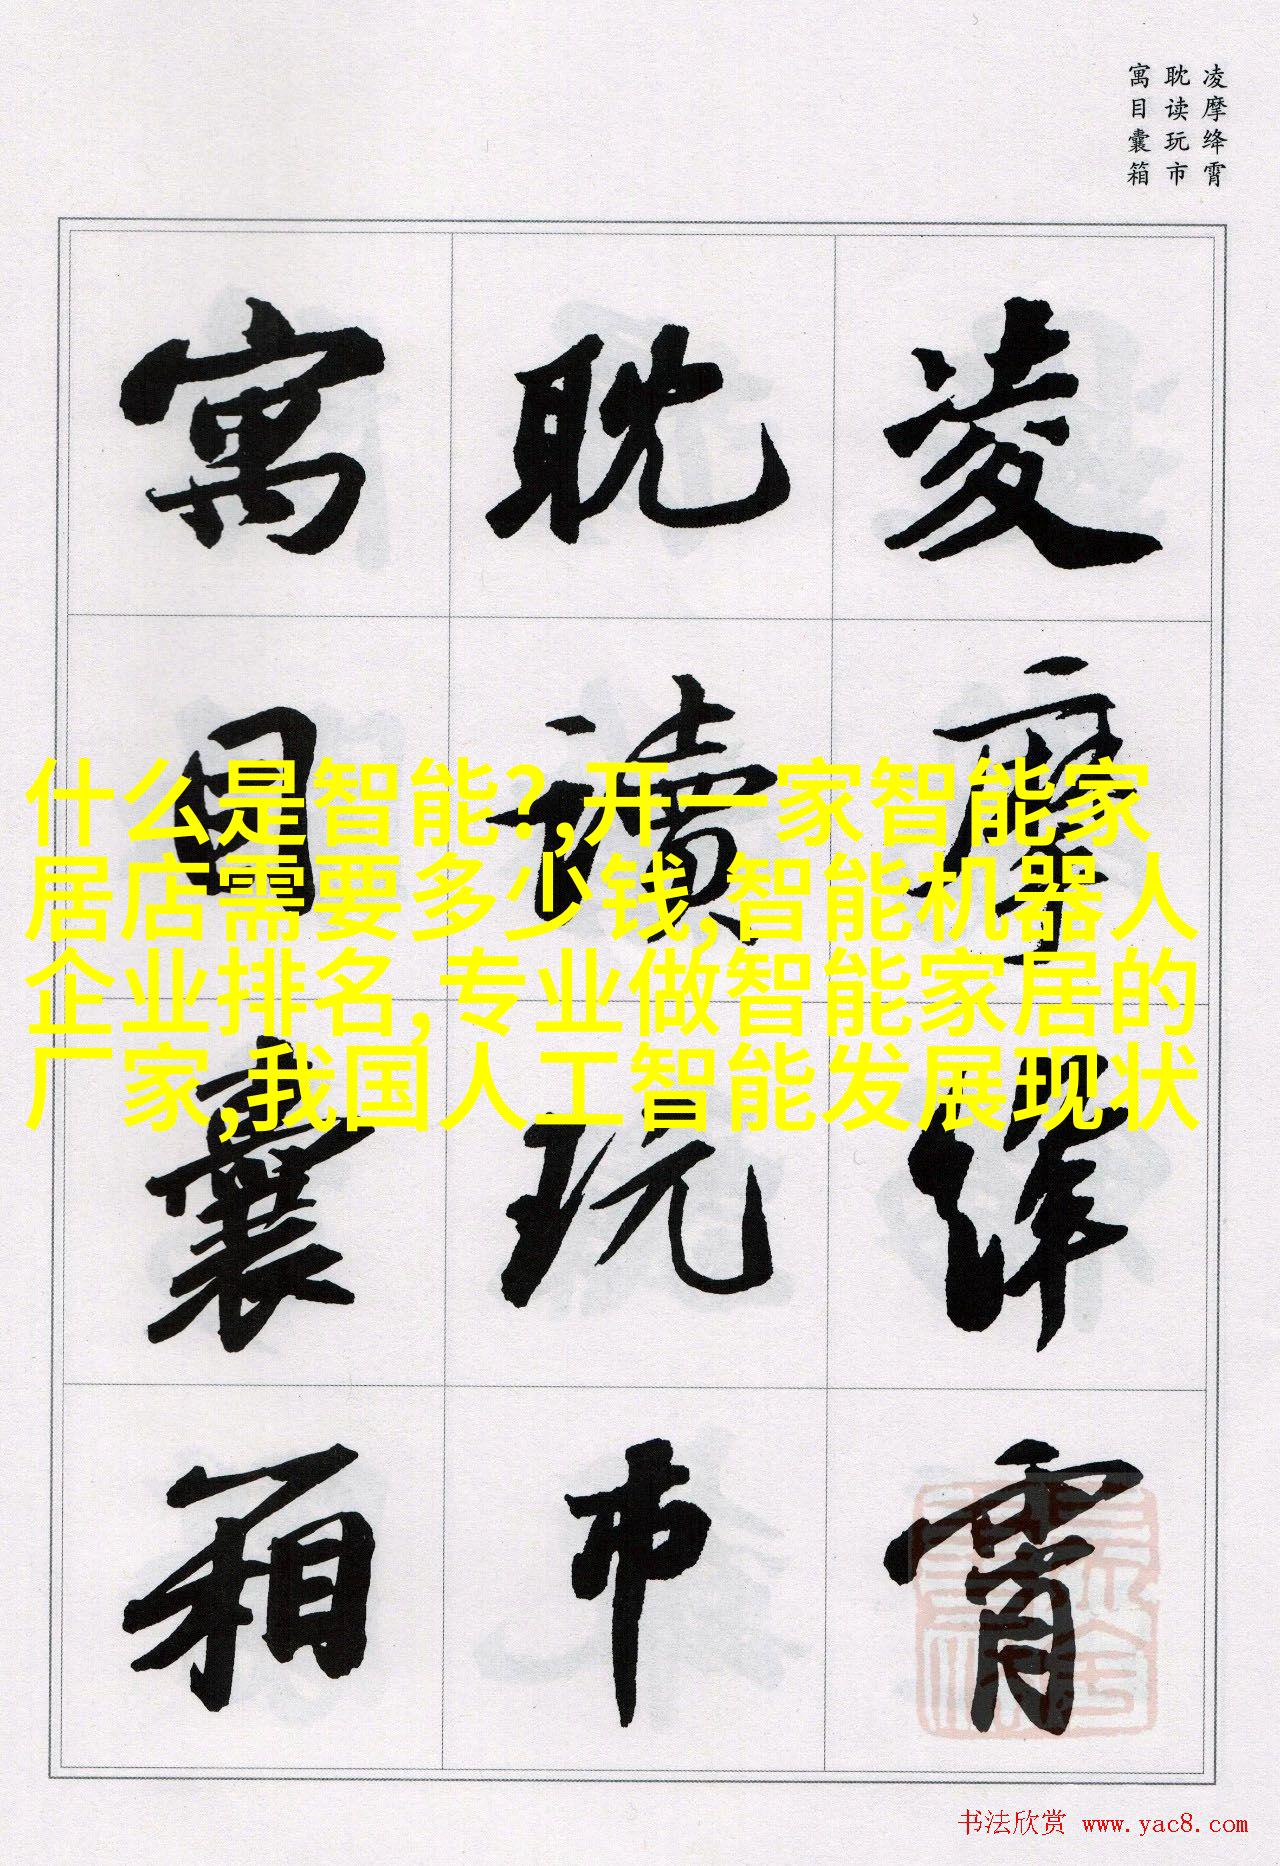 凌摩绛霄
耽读玩市
寓目囊箱
凌摩绛霄
耽读玩市
寓目囊箱
什么是智能?,开一家智能家
居店需要多少钱,智能机器人
企业排名,专业做智能家居的
厂家,我国人工智能发展现状
书法欣赏 www.yac8.com